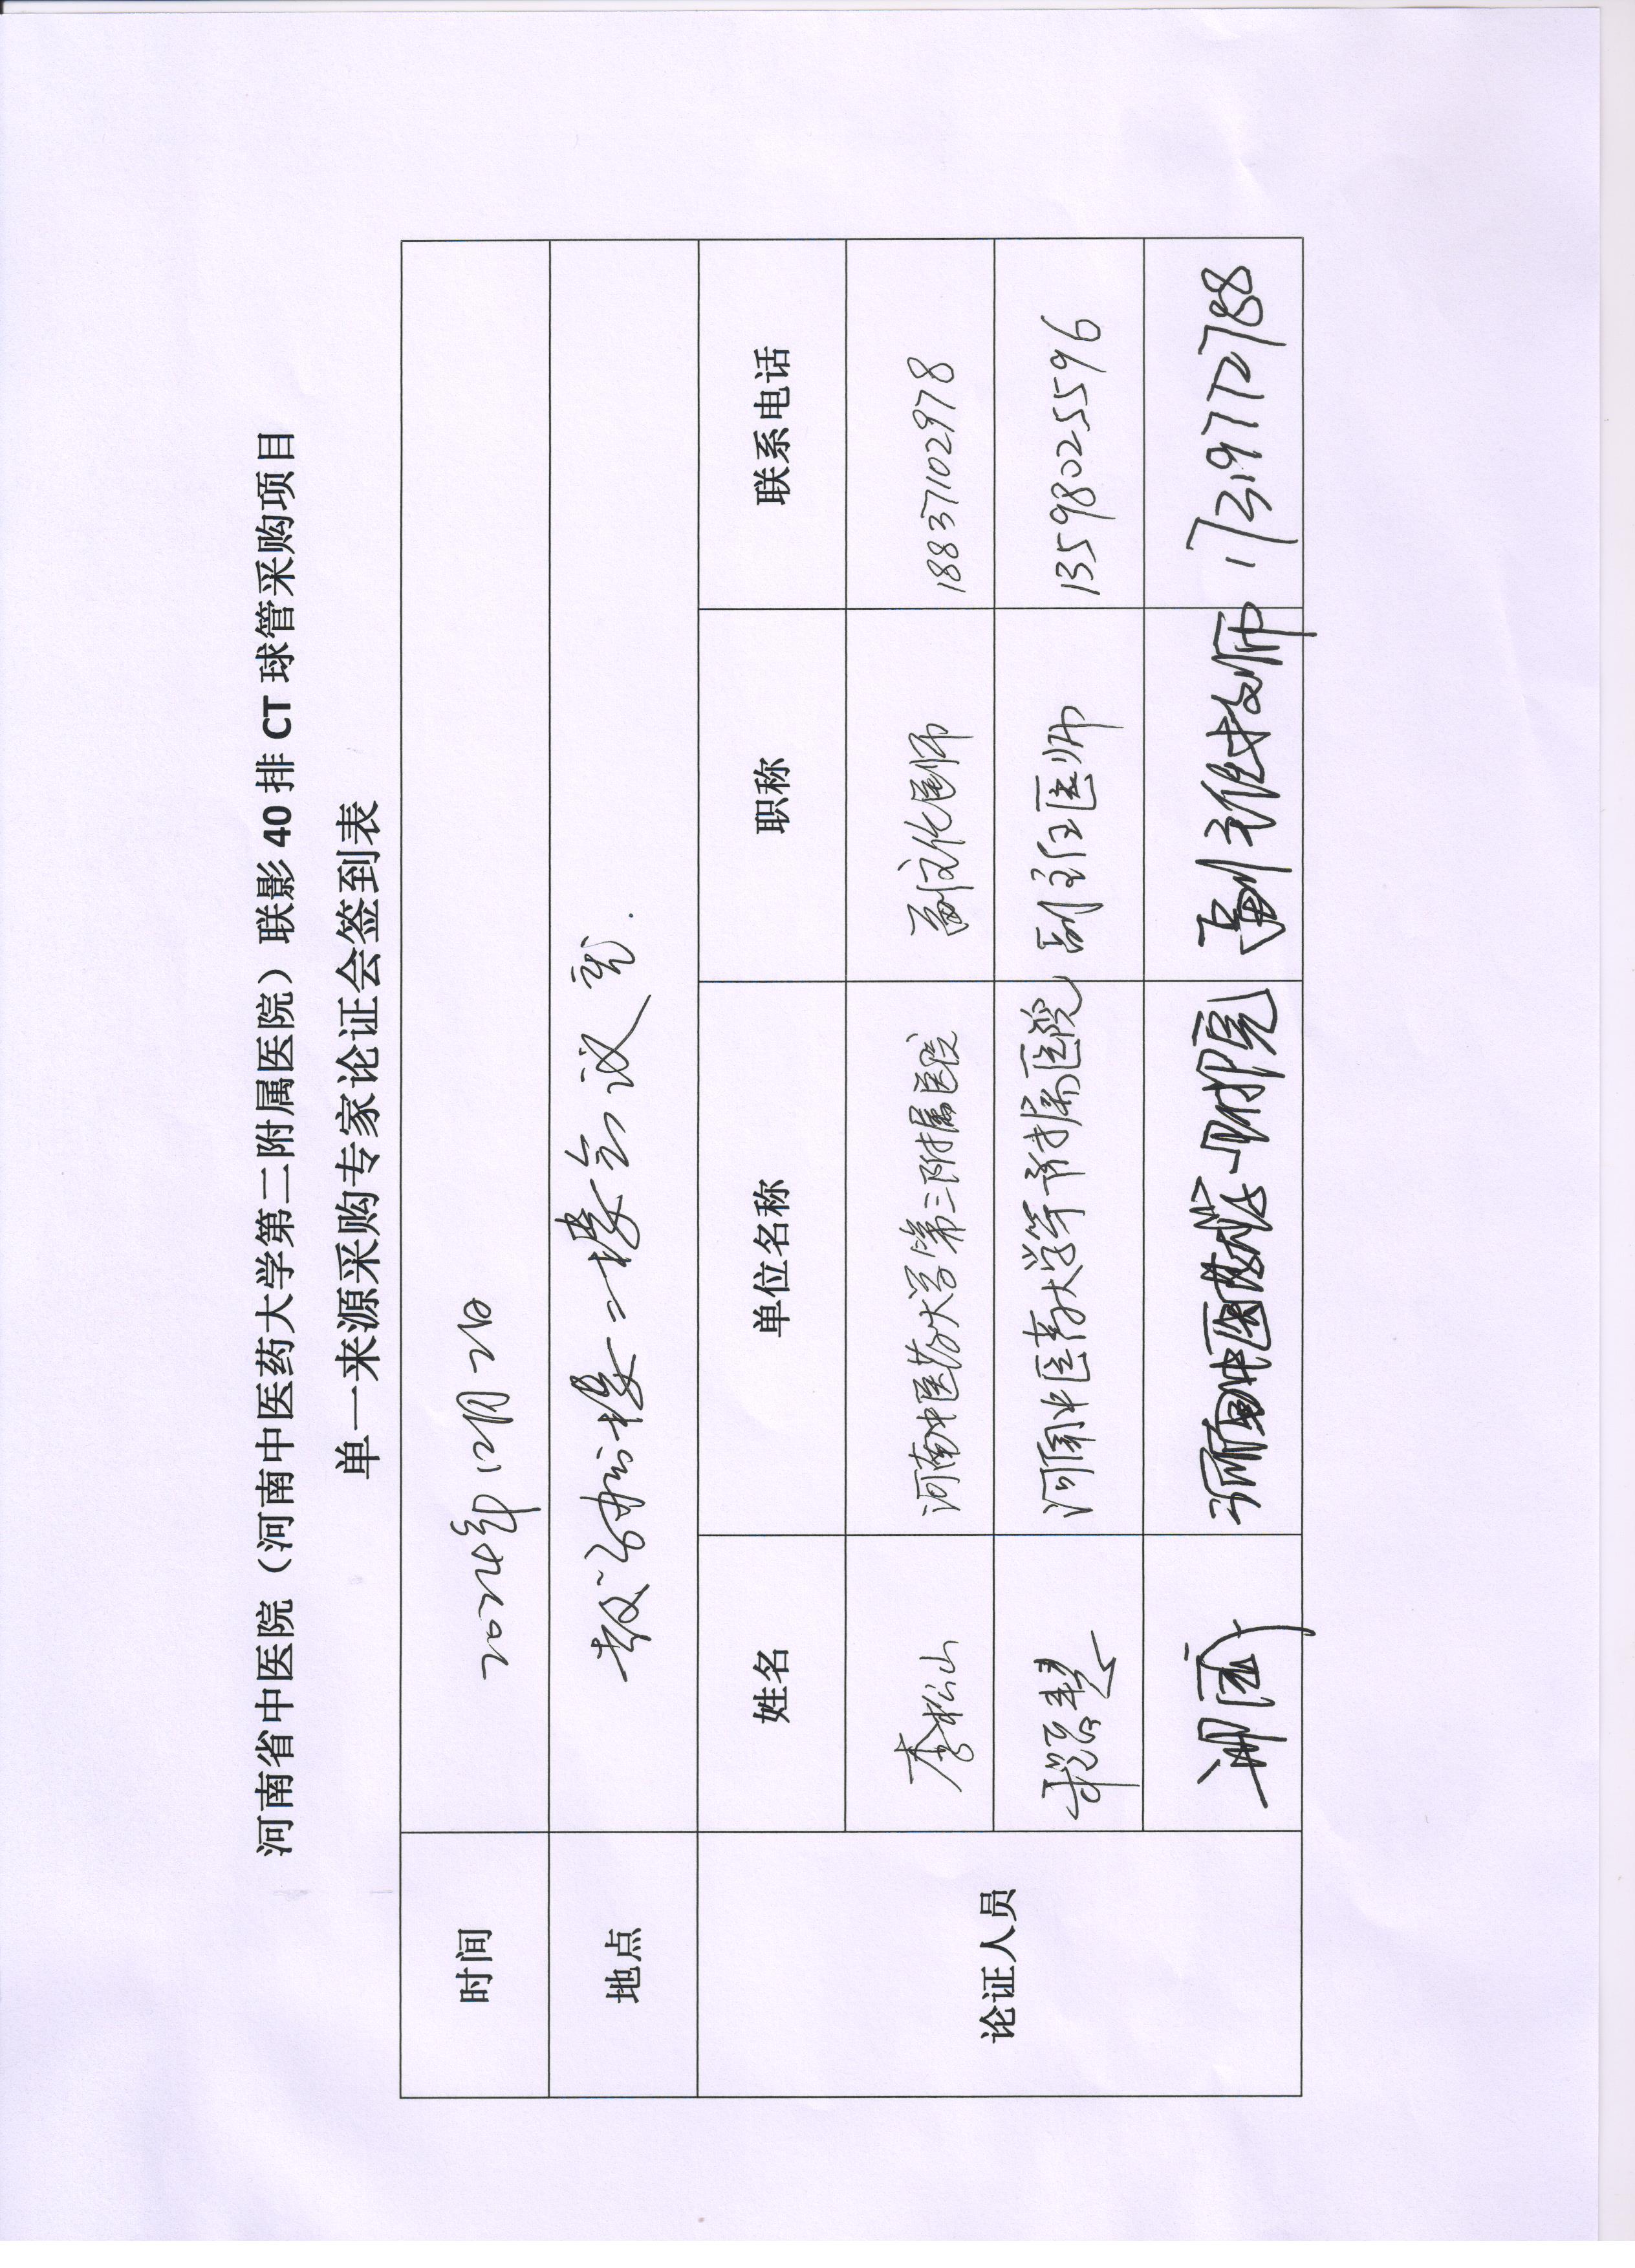 河南省中医院（河南中医药大学第二附属医院）联影 40 排 CT 球管采购项目
单一来源采购专家论证会签到表
时间 2024年12月2日
地点 二楼会议室.
论证人员 姓名 单位名称 职称 联系电话
李松山 河南中医药大学第三附属医院 副主任医师 18837102978
河南中医药大学 附属医院 副主任医师 13598025596
河南中医药大学一附院 副主任技师 17319772788